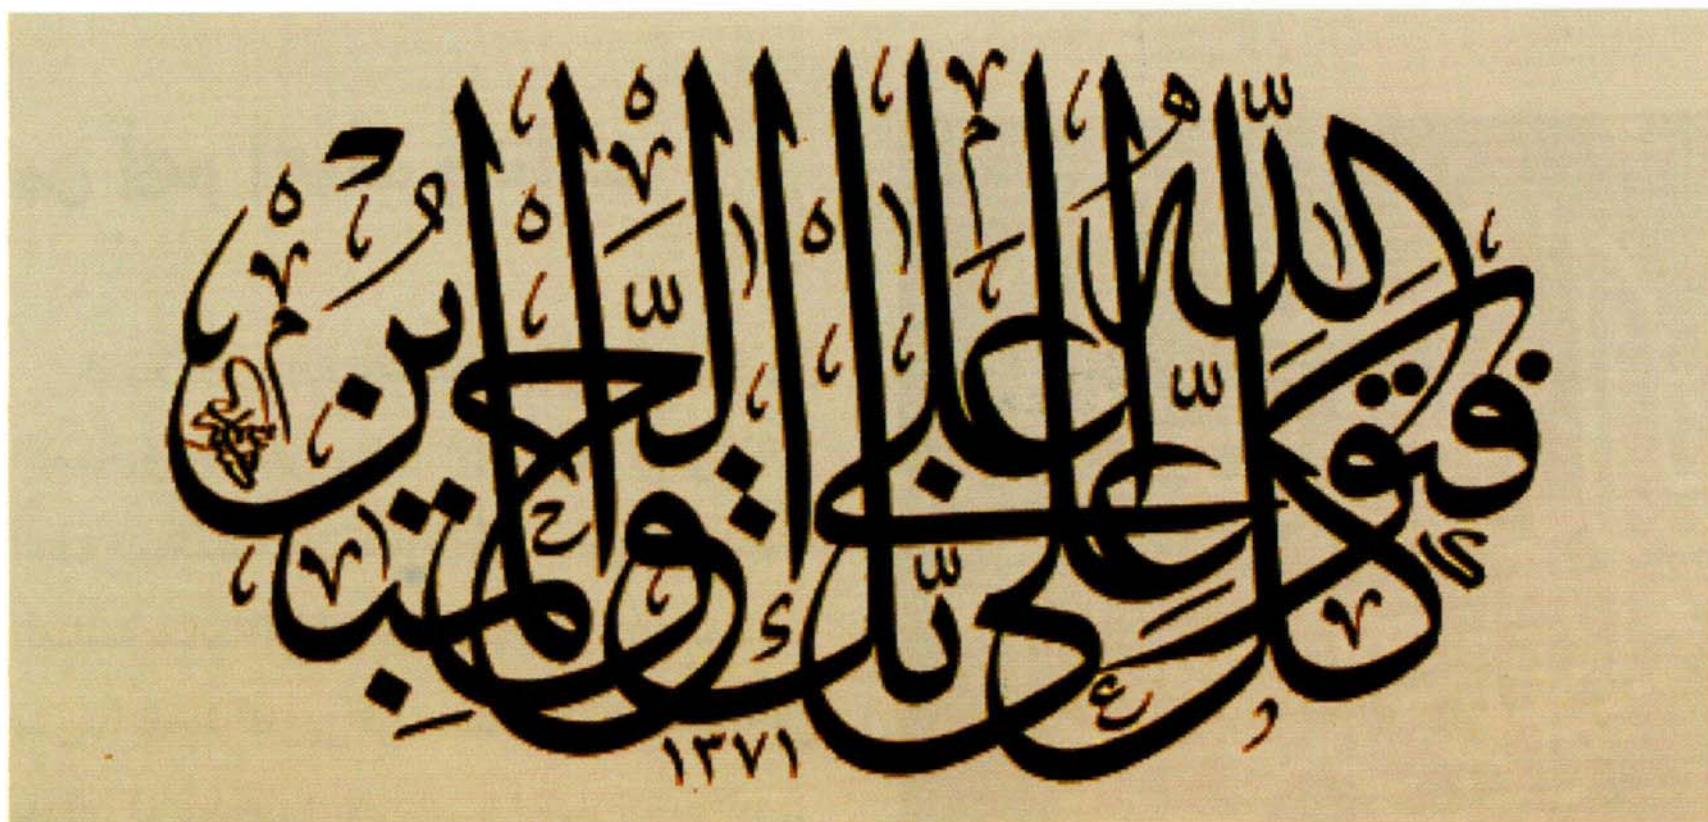 فَتَوَكَّلْ عَلَى اللّٰهِ اِنَّكَ عَلَى الْحَقِّ الْمُبِينِ
١٣٧١